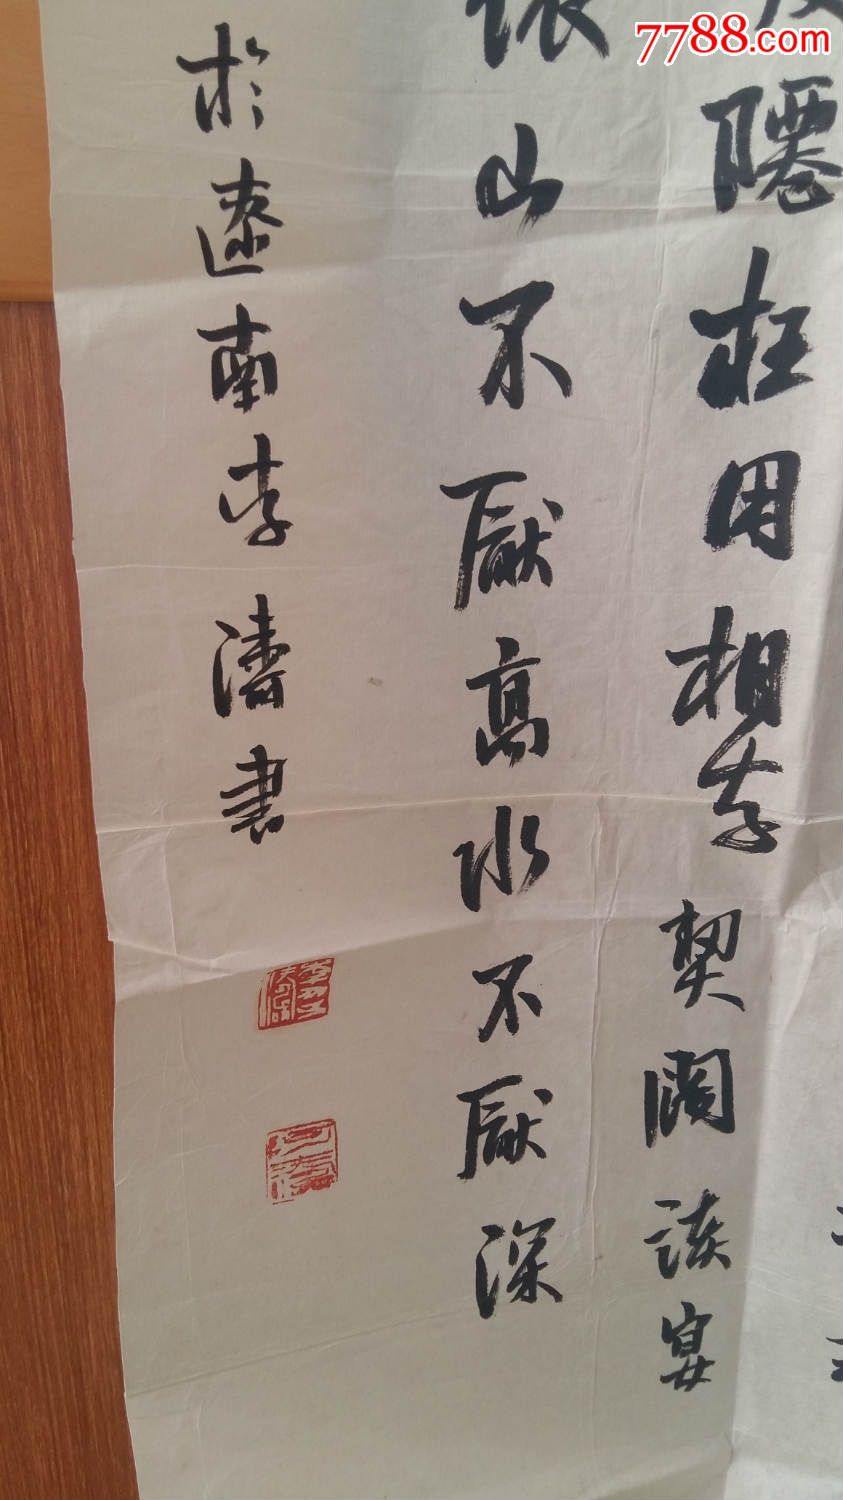 7788.com
枉用相存契闊談宴
依山不厭高水不厭深
於遼南李濤書